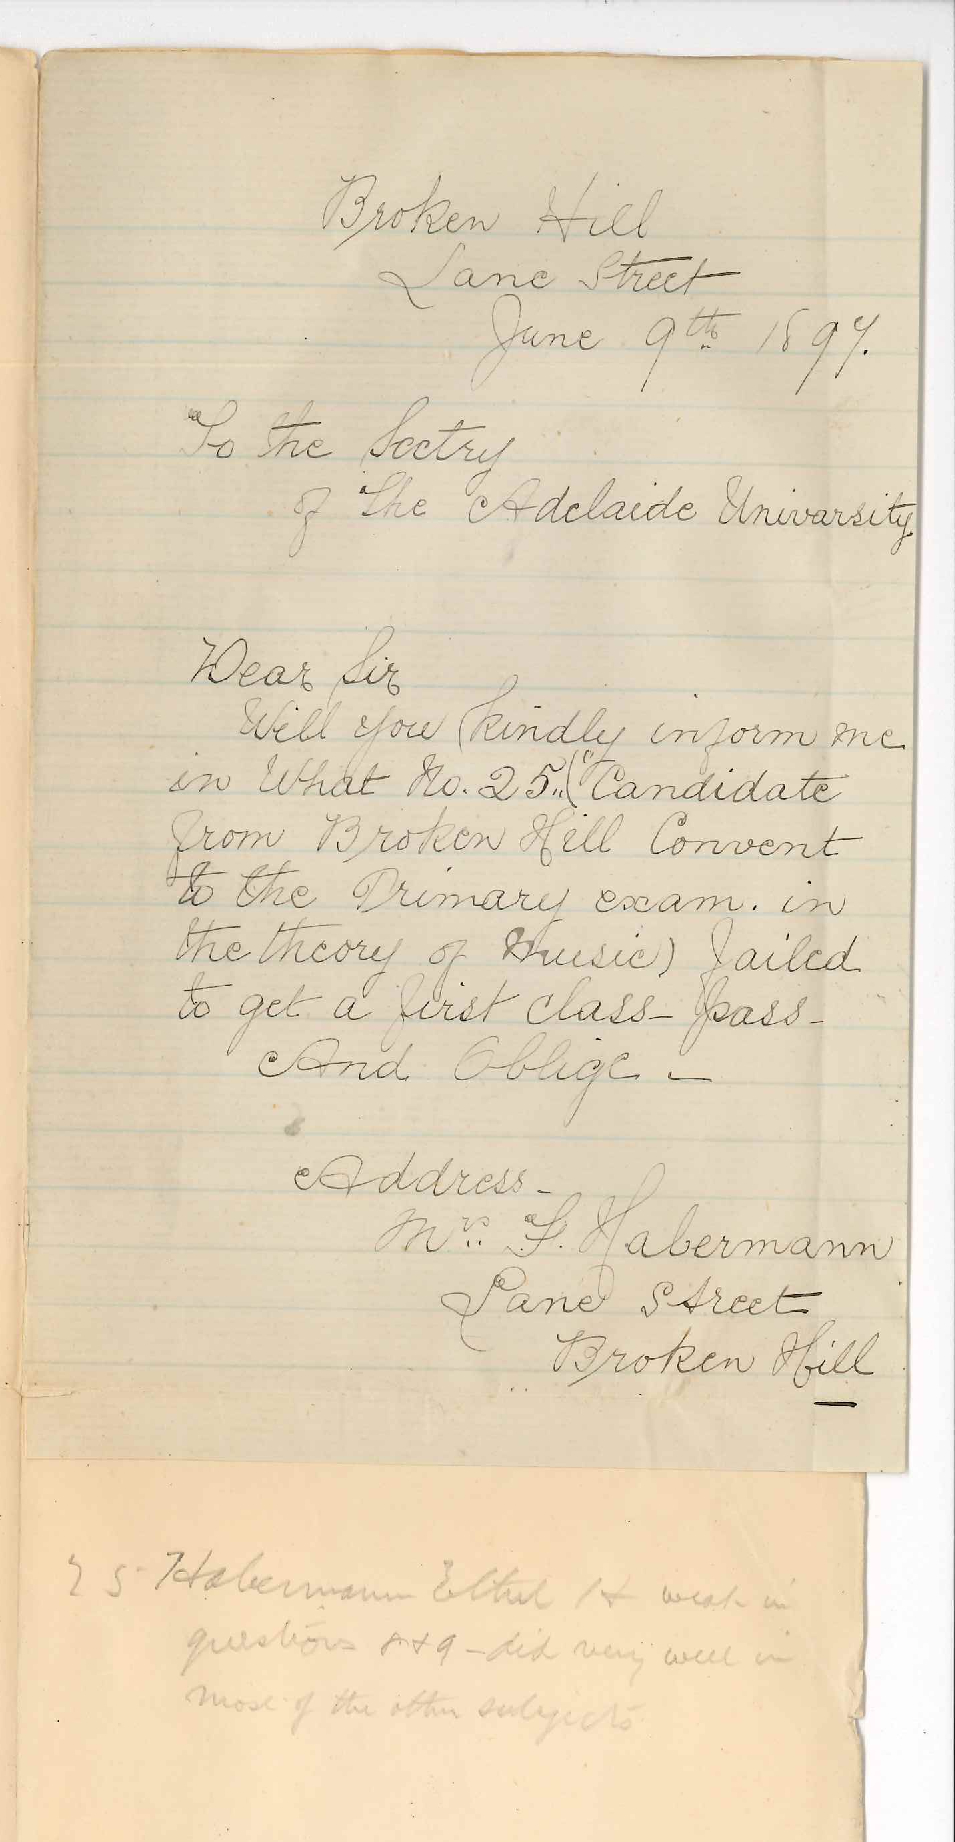 Broken Hill
Lane Street
June 9th 1897.
To the Sectry
of The Adelaide Univarsity
Dear Sir
Will you kindly inform me
in What No. 25. (Candidate
from Broken Hill Convent
to the Primary exam. in
the theory of Music) failed
to get a first class pass -
And Oblige -
Address -
Mrs. F. Habermann
Lane Street
Broken Hill
25 Habermann Ethel 14 weak in
questions 8 & 9 - did very well in
most of the other subjects